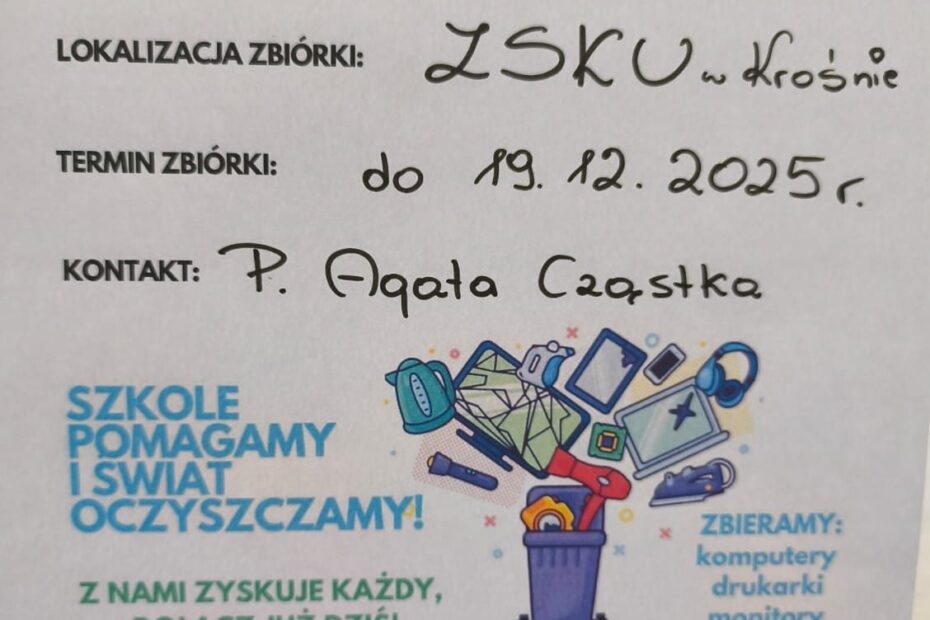 LOKALIZACJA ZBIÓRKI: ZSKU w Krośnie
TERMIN ZBIÓRKI: do 19. 12. 2025 r.
KONTAKT: P. Agata Cząstka
SZKOLE
POMAGAMY
I ŚWIAT
OCZYSZCZAMY!
ZBIERAMY:
komputery
drukarki
monitory
Z NAMI ZYSKUJE KAŻDY,